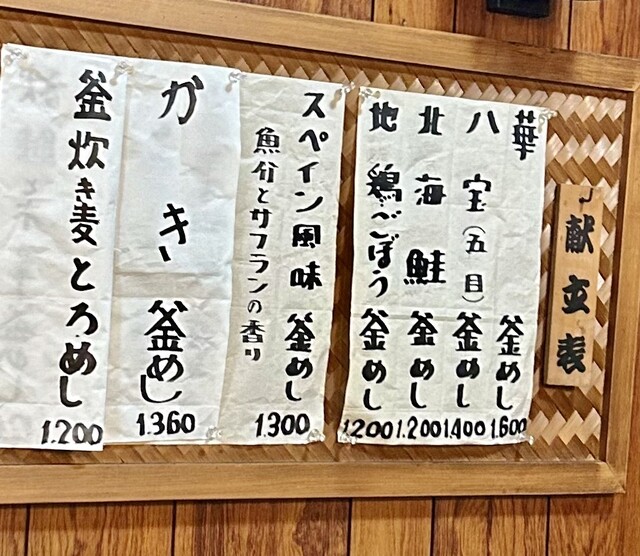 献立表
華 釜めし 1.600
八宝(五目) 釜めし 1.400
北海鮭 釜めし 1.200
地鶏ごぼう 釜めし 1200
スペイン風味 釜めし 1.300
魚介とサフランの香り
かき 釜めし 1.360
釜炊き麦とろめし 1.200